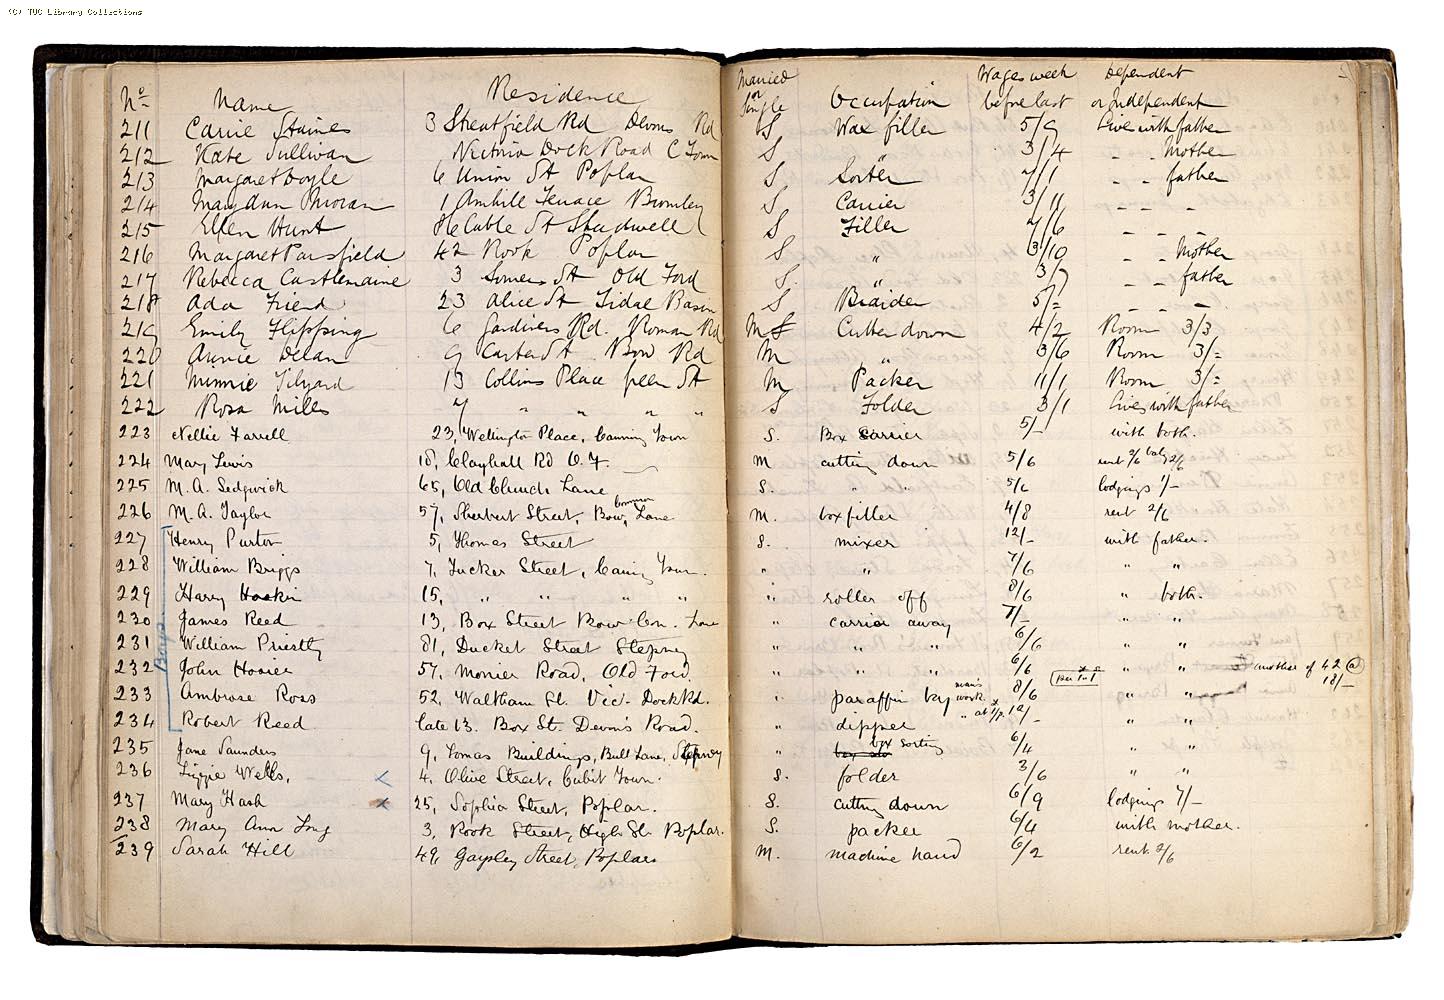 (C) TUC Library Collections
No Name Residence Married or Single Occupation Wages week before last Dependent or Independent
211 Carrie Staines 3 Streatfield Rd Devons Rd S Wax filler 5/9 Lives with father
212 Kate Sullivan Victoria Dock Road C Town S " 3/4 - - Mother
213 Margaret Boyle 6 Union St Poplar S Sorter 7/1 - - father
214 Mary 1 Amhile Terrace Bromley S Carrier 3/11 - - -
215 Ellen Hunt Cable St Shadwell S Filler 7/6 - - -
216 Margaret Parsfield 42 Rook Poplar S " 3/10 - - Mother
217 Rebecca Castlemaine 3 Somers St Old Ford S. " 3/7 - - father
218 Ada Friend 23 Alice St Tidal Basin S Braider 5/= - - -
219 Emily Flipping 6 Gardiners Rd. Roman Rd M S Cutter down 4/2 Room 3/3
220 Annie Delan 9 Carter St Bow Rd M " 3/6 Room 3/=
221 Minnie Tilyard 13 Collins Place green St M Packer 11/1 Room 3/=
222 Rosa Miles 7 " " " " S Folder 3/1 Lives with father
223 Nellie Farrell 23, Wellington Place, Canning Town S. Box carrier 5/- with both.
224 Mary Lewis 18, Clayhall Rd O.F. M cutting down 5/6 rent 2/6 baby 2/6
225 M.A. Sedgwick 65, Old Church Lane S. " " 5/6 lodgings 1/-
226 M.A. Taylor 57, Sherbert Street, Bow, Common Lane M. box filler 4/8 rent 2/6
227 Henry Purton 5, Thomas Street S. mixer 12/- with father.
228 William Briggs 7, Tucker Street, Caning Town. " " 7/6 " "
229 Harry Hoskin 15, " " " " " roller off 8/6 " both.
230 James Reed 13, Box Street Bow Con. Lane " carrier away 7/- " "
231 William Priestly 81, Ducket Street Stepney " " " 6/6 " "
Boys
232 John Hosier 57, Monier Road, Old Ford. " " " 6/6 " " another of 42 @ 18/-
233 Ambrose Ross 52, Waltham St. Vic. Dock Rd. " paraffin boy man's work 8/6 " "
234 Robert Reed late 13. Box St. Devon's Road. " dipper " at 1/p. 12/- " "
235 Jane Saunders 9, Tomas Buildings, Bull Lane, Stepney " box sorting 6/4 " "
236 Lizzie Wells, 4, Olive Street, Cubit Town. S. folder 3/6 " "
237 Mary Hash x 25, Sophia Street, Poplar. S. cutting down 6/9 lodgings 7/-
238 Mary Ann Long 3, Rook Street, High St. Poplar. S. packer 6/4 with mother.
239 Sarah Hill 49, Gaysley Street, Poplar M. machine hand 6/2 rent 2/6